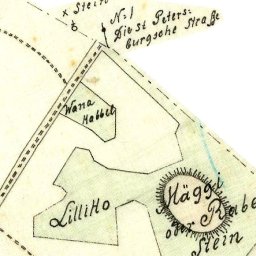 x Stein
N: 1
Die St Peters-
burgsche Straße
Wana
Kabbel
Lilliko
Häggi
oder Rabe
Stein